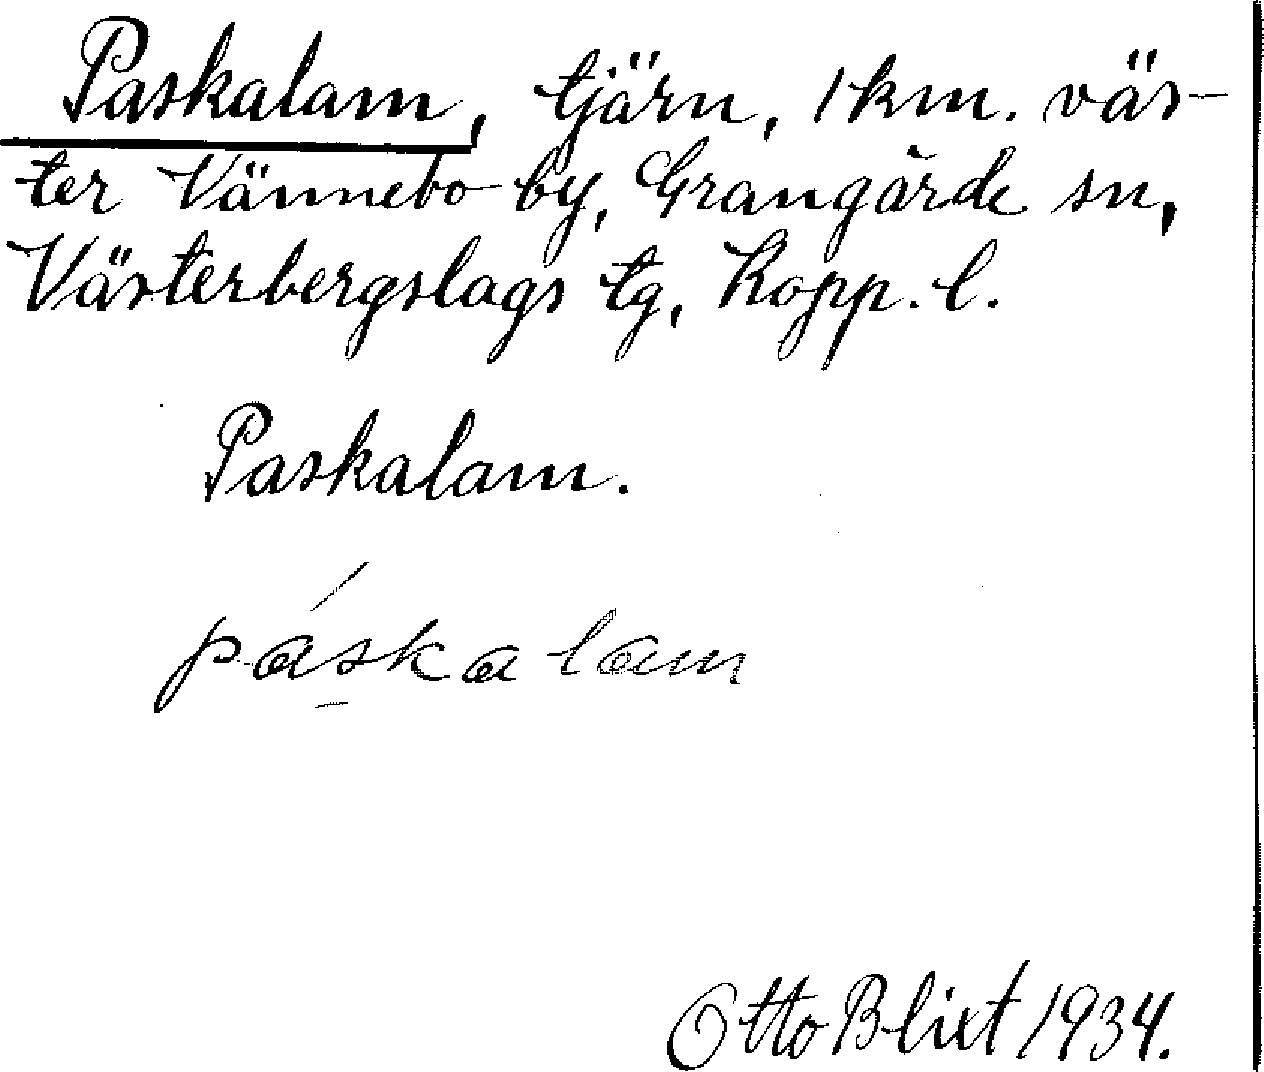 Paskalam, tjärn, 1 km. väs-
ter Vännebo by, Grangärde sn,
Västerbergslags tg, Kopp. l.
Paskalam.
páskalam
Otto Blixt 1934.